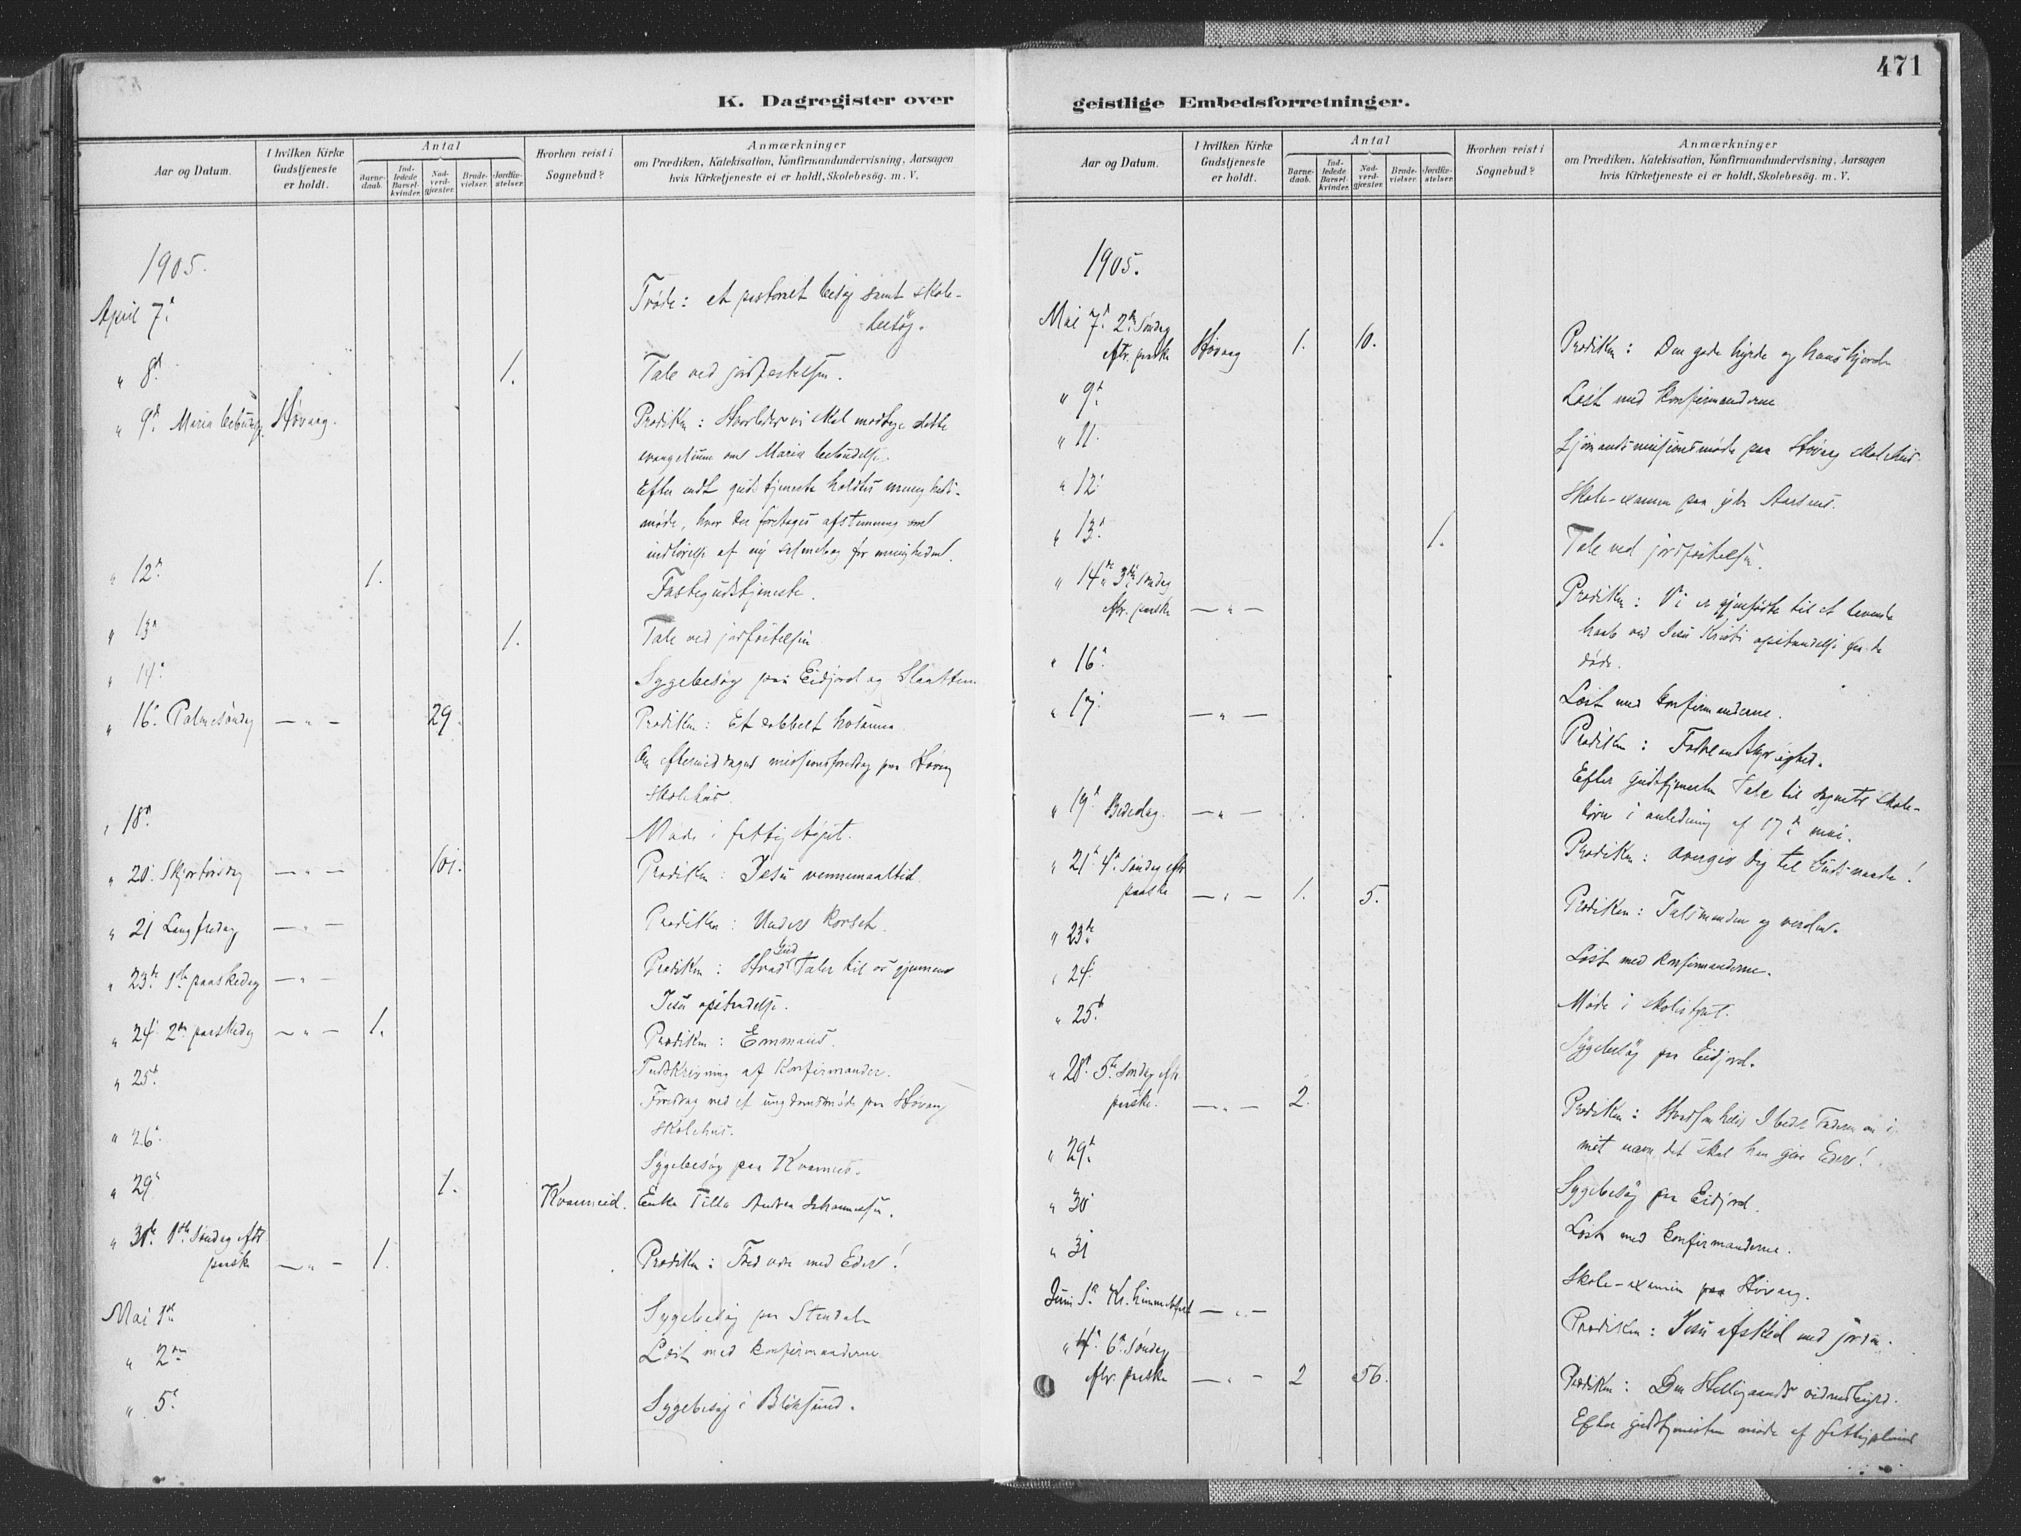 K. Dagregister over
Aar og Datum.
I hvilken Kirke Gudstjeneste er holdt.
Antal
Barnedaab.
Indledede Barselkvinder.
Nadverdgjæster.
Brudevielser.
Jordfæstelser.
Hvorhen reist i Sognebud?
Anmærkninger
om Prædiken, Katekisation, Konfirmandundervisning, Aarsagen
hvis Kirketjeneste ei er holdt, Skolebesøg. m. V.
1905.
April 7d. Trøde: et pastoralt besøg samt skole-
besøg.
" 8d. 1. Tale ved jordfæstelsen.
" 9d. Maria bebud. Høvaag. Prædiken: Hvorledes vi skal modtage dette
evangelium om Maria bebudelse.
Efter endt gudstjeneste holdtes menigheds-
møde, hvor der foretoges afstemning om
indførelse af ny salmebog for menigheden.
" 12d. 1. Fastegudstjeneste.
" 13d 1. Tale ved jordfæstelsen
" 14d. Sygebesøg paa Eidjord og Slaatten
" 16d. Palmesøndag — " — 29. Prædiken: Et dobbelt hosianna.
Om eftermiddagen missionsforedrag paa Høvaag
skolehus.
" 18d. Møde i fattigstyret.
" 20. Skjærtorsdag — " — 101. Prædiken: Jesu vennemaaltid.
" 21 Langfredag — " — Prædiken: Under korset.
" 23de 1ste paaskedag — " — Prædiken: Hvad Gud taler til os gjennem
Jesu opstandelse.
" 24. 2den paaskedag — " — 1. Prædiken: Emmaus.
" 25d Indskrivning af konfirmander.
Foredrag ved et ungdomsmøde paa Høvaag
skolehus.
" 26d. Sygebesøg paa Kvannes.
" 29d 1. Kvanneid. Enke Tilla Andrea Johannesen.
" 30te 1ste Søndag eftr.
paaske — " — 1. Prædiken: Fred være med Eder!
Mai 1ste Sygebesøg paa Stendalen
" 2den Læst med konfirmanderne
" 5d. Sygebesøg i Bliksund.
471
geistlige Embedsforretninger.
Aar og Datum.
I hvilken Kirke Gudstjeneste er holdt.
Antal
Barnedaab.
Indledede Barselkvinder.
Nadverdgjæster.
Brudevielser.
Jordfæstelser.
Hvorhen reist i Sognebud?
Anmærkninger
om Prædiken, Katekisation, Konfirmandundervisning, Aarsagen
hvis Kirketjeneste ei er holdt, Skolebesøg. m. V.
1905.
Mai 7d. 2den Søndag
eftr. paaske Høvaag 1. 10. Prædiken: Den gode hyrde og hans hjord
" 9d. Læst med konfirmanderne
" 11. Sjømandsmissionsmøde paa Høvaag skolehus
" 12. Skole-examen paa ytre Aarsnes.
" 13d. 1. Tale ved jordfæstelsen.
" 14de 3die Søndag
eftr. paaske — " — Prædiken: Vi er gjenfødte til et levende
haab ved Jesu Kristi opstandelse fra de
døde.
" 16d. Læst med konfirmanderne.
" 17. — " — Prædiken: Fædrelandskjærlighed.
Efter gudstjenesten Tale til skole-
børn i anledning af 17de mai.
" 19d. Bededag. — " — Prædiken: Overgiv dig til Guds naade!
" 21d 4d Søndag eftr
paaske — " — 1. 5. Prædiken: Talsmanden og verden.
" 23de Læst med konfirmanderne.
" 24. Møde i skolestyret.
" 25d. Sygebesøg paa Eidjord.
" 28d. 5te Søndag eftr
paaske. — " — 2. Prædiken: Hvadsomhelst I beder Faderen om i
mit navn det skal han give Eder!
" 29d. Sygebesøg paa Eidjord.
" 30 Læst med konfirmanderne.
" 31 Skole-examen paa Høvaag.
Juni 1d. Kr. himmelfart — " — Prædiken: Jesu afsked med jorden.
" 4d. 6d Søndag
eftr. paaske — " — 2 56. Prædiken: Den Helligaands vidnesbyrd.
Efter gudstjenesten møde af